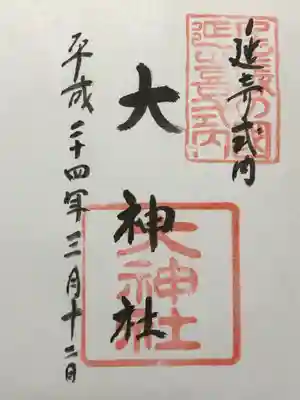 延喜式内
大神社
平成二十四年三月十二日
大神社